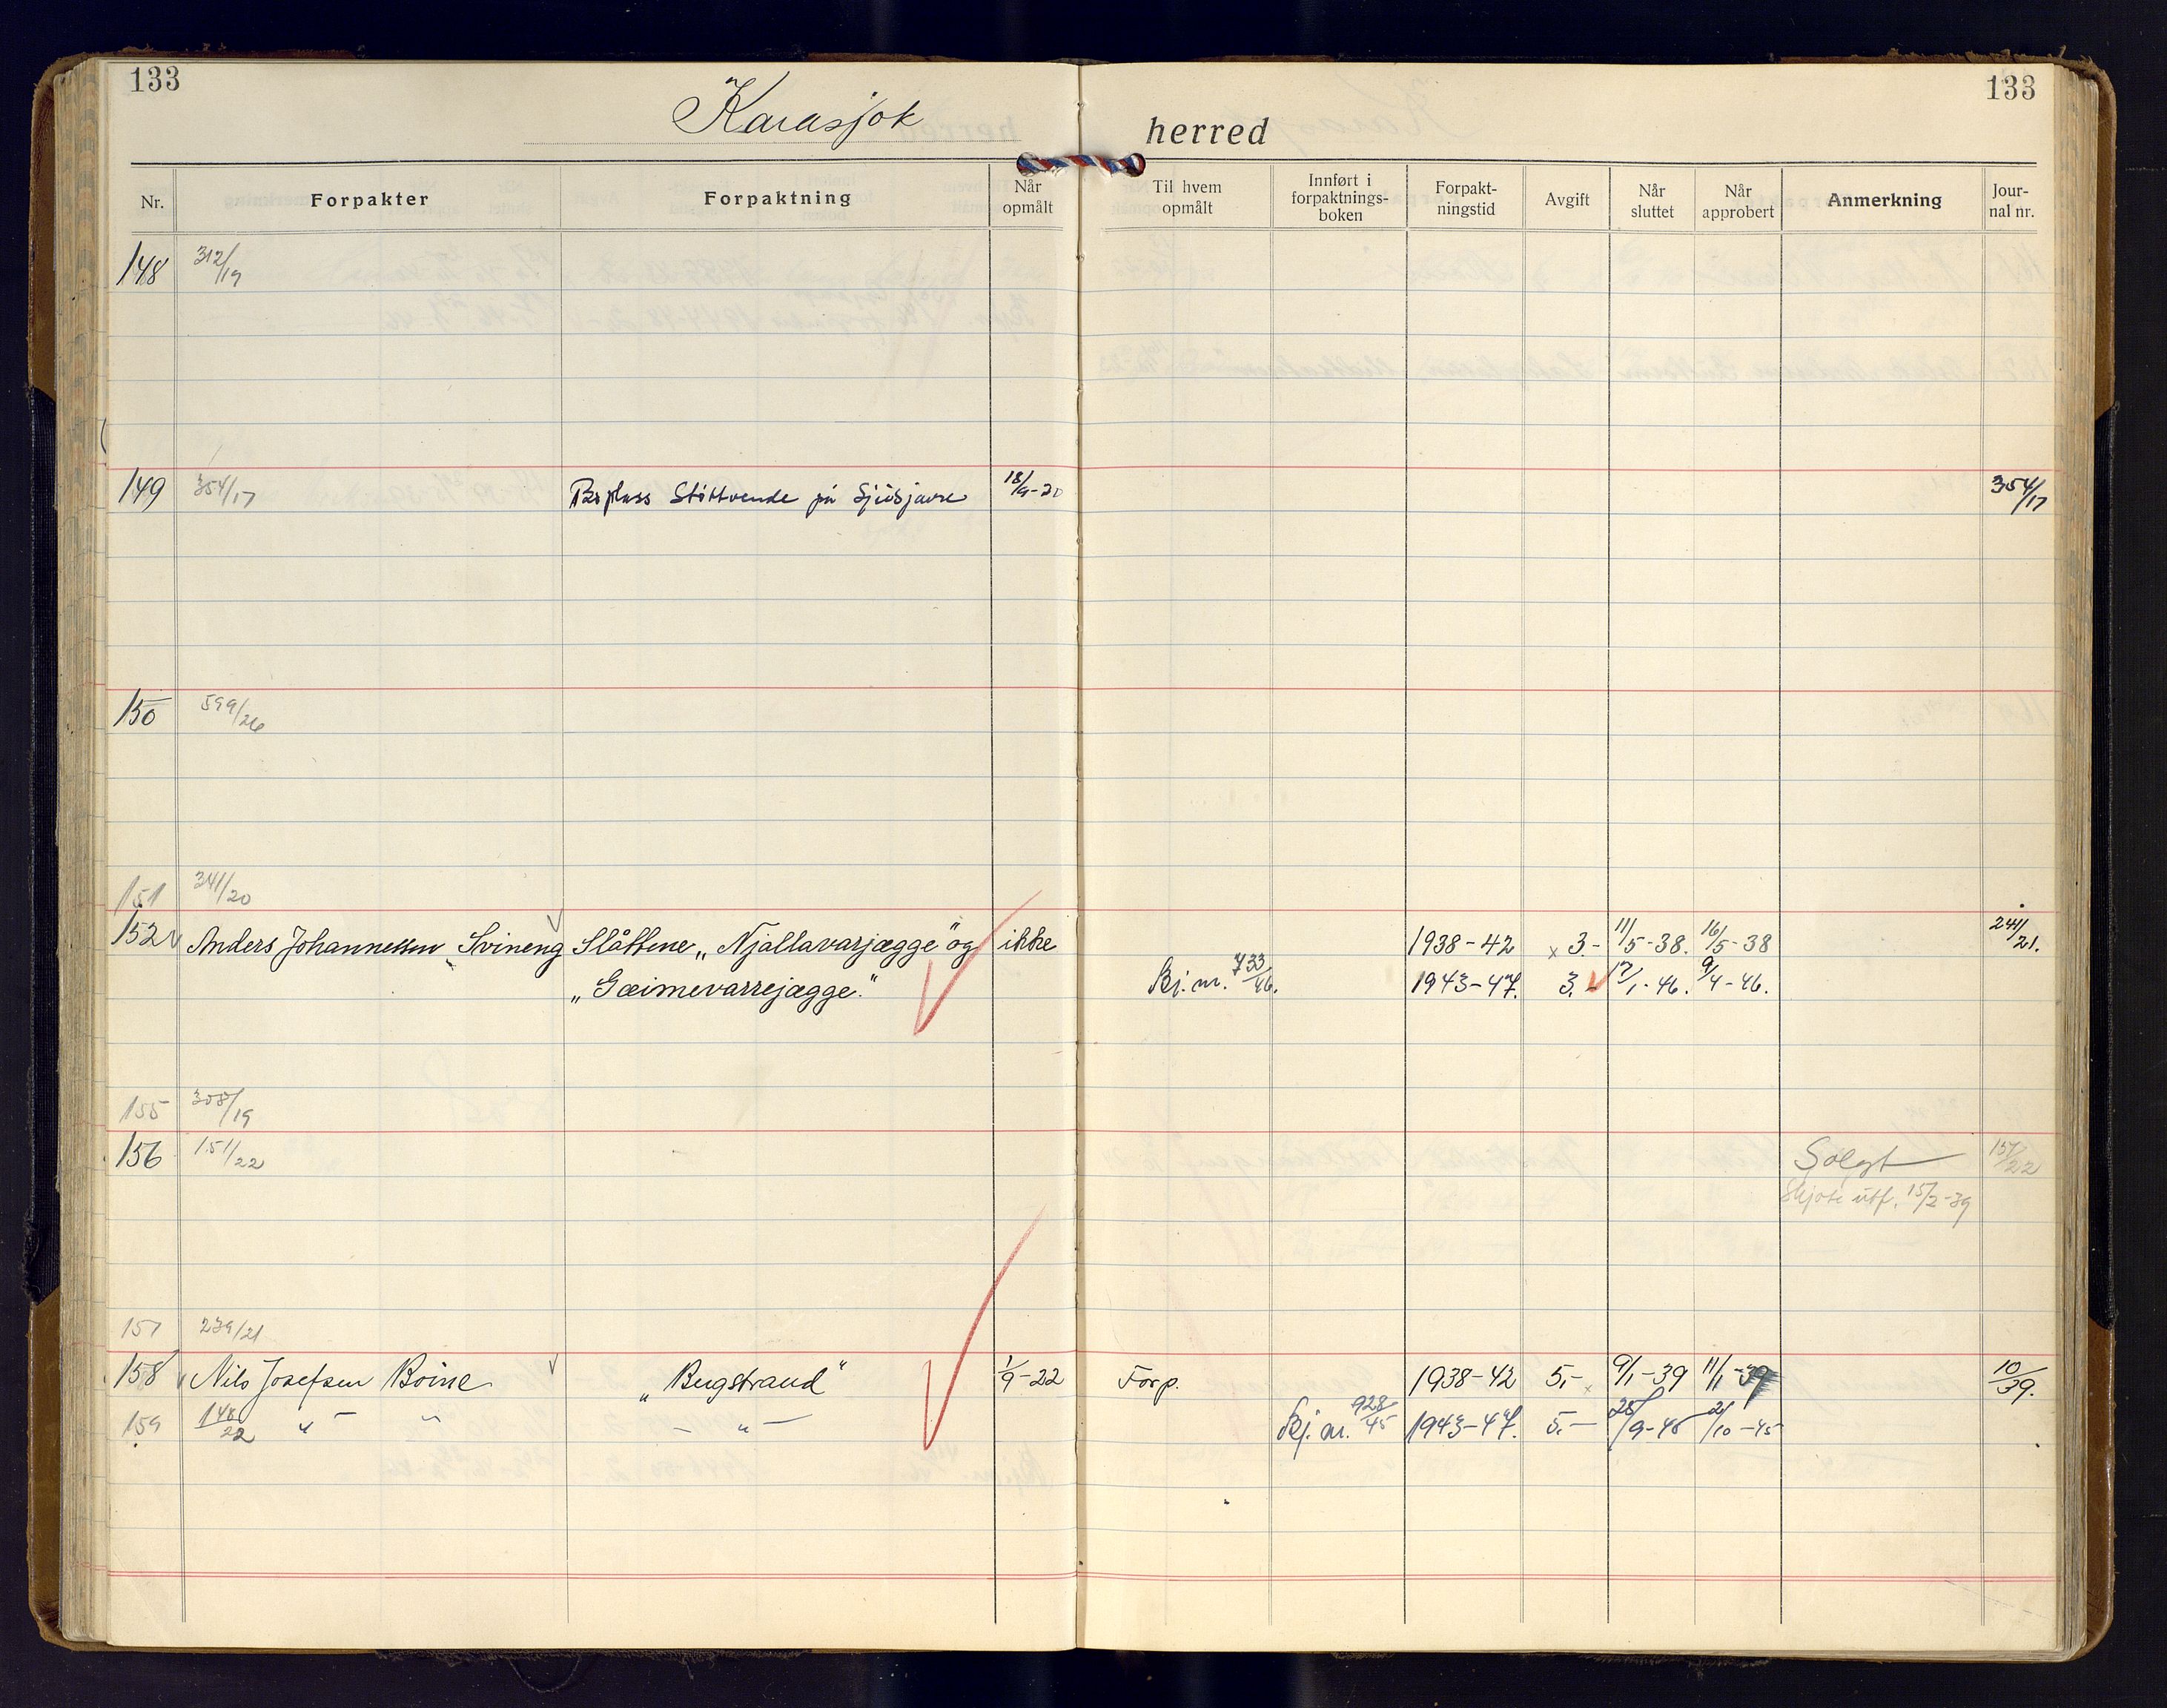 133
133
Karasjok herred
Nr. Forpakter Forpaktning Når opmålt Til hvem opmålt Innført i forpaktnings-boken Forpakt-ningstid Avgift Når sluttet Når approbert Anmerkning Jour-nal nr.
148 312/19
149 354/17 Støttvende på 18/9-20 354/17
150 599/26
151 341/20
152 Anders Johannessen Svineng Slåttene „Njallavarjægge" og ikke 1938-42 x 3.- 11/5-38. 16/5-38 241/21.
„Gæimevarrejægge." Skj. nr. 733/46. 1943-47. 3.- 17/1-46. 9/4-46.
155 308/19
156 151/22 Solgt 151/22
Skjøte utf. 15/2-39
157 239/21
158 Nils Josefsen Boine „Bugstrand" 1/9-22 Forp. 1938-42 5,- 9/1-39 11/1-39 10/39.
159 148/22 „ - „ - „ - Skj. nr. 928/45 1943-47. 5.- 25/9-45 2/10-45